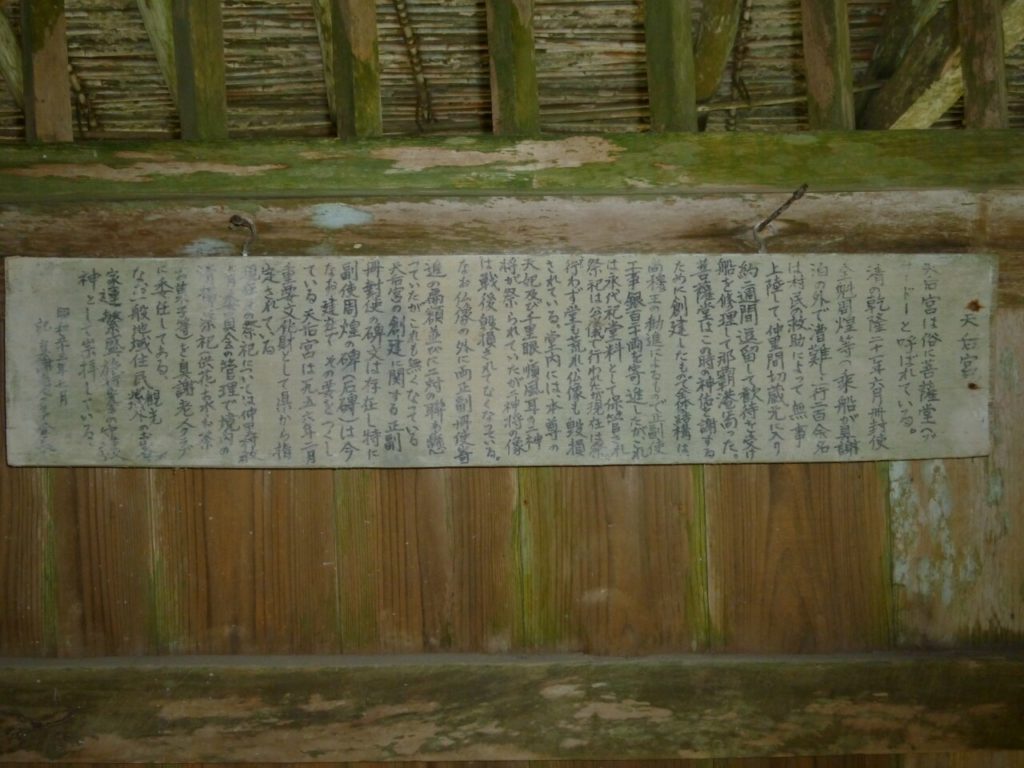 天后宮
天后宮は俗に菩薩堂(ブ
ドー)と呼ばれている。
清の乾隆二十一年六月冊封使
全魁周煌等の乗船が真謝
泊の外で遭難し一行二百余名
は村民の救助によって無事
上陸して仲里間切蔵元に入り
約一週間退留して歓待を受け
船を修理して那覇港に向った。
菩薩堂はこの時の神佑を謝する
ために創建したもので全体構は、
尚穆王の勧進によるもので正副使
工事銀百千両を寄進したがこれ
は永代祀堂料として保管され
祭祀は公儀で行われたが現在は祭
行わず堂も荒れ仏像も毀損
されている。堂内には本尊の
天妃及び千里眼、順風耳の二神
将が祭られていたが二神将の像
は戦後毀損されてなくなっている。
なお仏像の外に両正副冊使寄
進の扁額並びに対の聯も懸
っていたがこれも無くなっている
天后宮の創建に関する正副
冊封使の碑文は存在し特に
副使周煌の碑(石磚)は今
なお建立でその美をつくし
ている。天后宮は一九五六年二月
重要文化財として県から指
定されている。
現在の祭祀については仲里村役
場の管理で境内の
清掃、添祀(供花、お水、お茶
)を真謝老人クラブ
に奉仕してある。
なお一般地域住民、観光
家運繁盛、の
神として崇拝している、
昭和五十 年十月